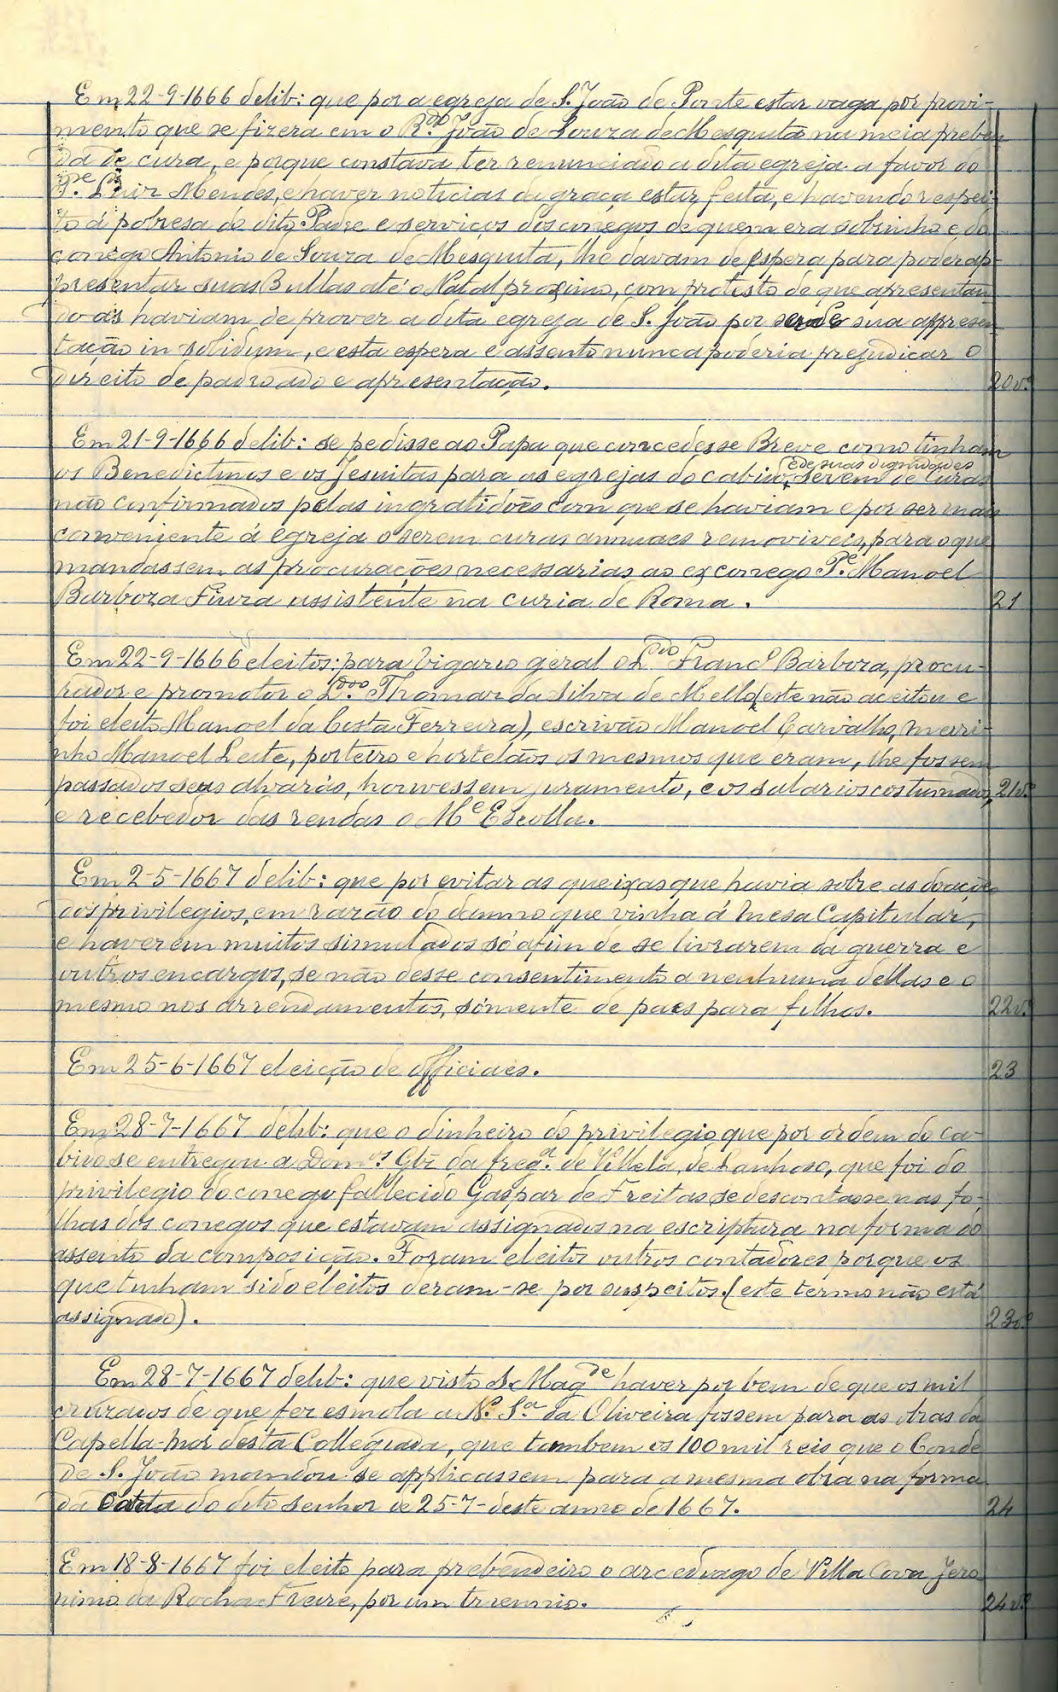 Em 22-9-1666 delib: que por a egreja de S. João de Ponte estar vaga por provi-
mento que se fizera em o R.do João de Souza de Mesquita na meia preben
da de cura, e porque constava ter renunciado a dita egreja a favor do
P.e Luiz Mendes, e haver noticias da graça estar feita, e havendo respei-
to á pobresa do dito Padre e serviços dos conegos de quem era sobrinho e do
conego Antonio de Souza de Mesquita, lhe davam de espera para poder ap-
presentar suas Bullas até o Natal proximo, com protesto de que apresentan
do-as haviam de prover a dita egreja de S. João por ser de sua appresen
tação in solidum, e esta espera e assento nunca poderia prejudicar o
direito de padroado e apresentação. 20v.º
Em 21-9-1666 delib: se pedisse ao Papa que concedesse Breve como tinham
os Benedictinos e os Jesuitas para as egrejas do cabido (e de suas dignidades) serem de curas
não confirmados pelas ingratidões com que se haviam e por ser mais
conveniente á egreja o serem curas annuaes removiveis, para o que
mandassem as procurações necessarias ao ex conego P.e Manoel
Barboza assistente na curia de Roma. 21
Em 22-9-1666 eleitos: para Vigario geral o L.do Franc.º Barboza, procu-
rador e promotor o L.do Thomaz da Silva de Mello (este não aceitou e
foi eleito Manoel da Costa Ferreira), escrivão Manoel Carvalho, meiri-
nho Manoel Leite, porteiro e hortelãos os mesmos que eram, lhe fossem
passados seus alvarás, houvessem juramento, e os salarios costumados, 21v.º
e recebedor das rendas o M.e Escolla.
Em 2-5-1667 delib: que por evitar as queixas que havia sobre as doações
dos privilegios, em razão do damno que vinha á Mesa Capitular,
e haverem muitos simulados só afim de se livrarem da guerra e
outros encargos, se não desse consentimento a nenhuma dellas e o
mesmo nos arrendamentos, sómente de paes para filhos. 22v.º
Em 25-6-1667 eleição de officiaes. 23
Em 28-7-1667 delib: que o dinheiro do privilegio que por ordem do ca-
bido se entregou a Dom.os Glz da freg.a de Villela, de Lanhoso, que foi do
privilegio do conego fallecido Gaspar de Freitas se descontasse nas fo-
lhas dos conegos que estavam assignados na escriptura na forma do
assento da composição. Foram eleitos outros contadores porque os
que tinham sido eleitos deram-se por suspeitos. (este termo não está
assignado). 23v.º
Em 28-7-1667 delib: que visto S. Mag.de haver por bem de que os mil
cruzados de que fez esmola a N. S.a da Oliveira fossem para as obras da
Capella-mor desta Collegiada, que tambem os 100 mil reis que o Conde
de S. João mandou se applicassem para a mesma obra na forma
da carta do dito senhor de 25-7-deste anno de 1667. 24
Em 18-8-1667 foi eleito para prebendeiro o arcediago de Villa Cova Jero
nimo da Rocha Freire, por um triennio. 24v.º